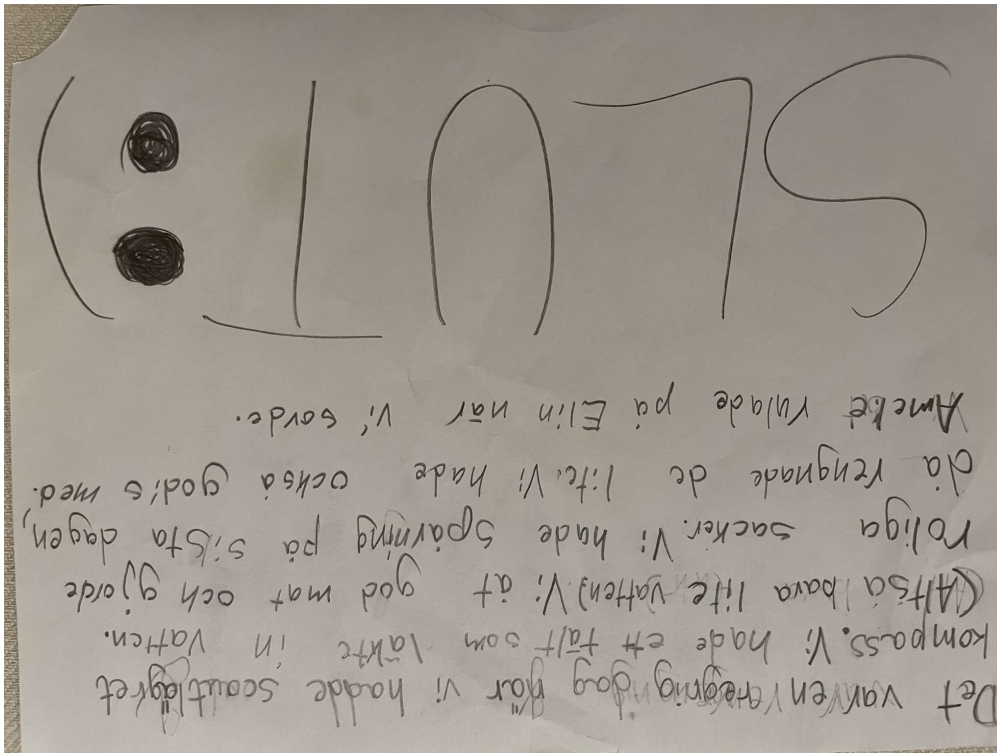 Det var en regnig dag när vi hadde scoutlägret
kompass. Vi hade ett tält som läkte in vatten.
(Altså bara lite vatten) Vi åt god mat och gjorde
roliga sacker. Vi hade spårning på sista dagen,
då rengnade de lite. Vi hade också godis med.
Amelie rulade på Elin när vi sovde.
SLUT :)